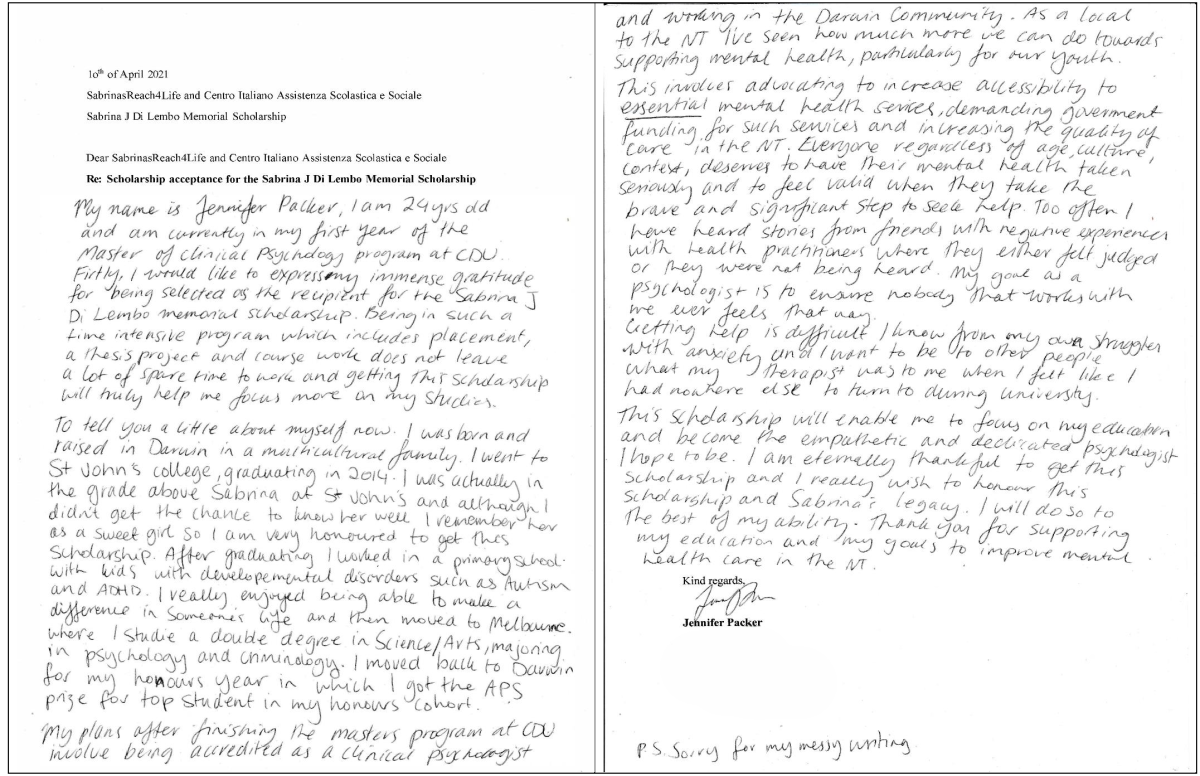 10th of April 2021
SabrinasReach4Life and Centro Italiano Assistenza Scolastica e Sociale
Sabrina J Di Lembo Memorial Scholarship
Dear SabrinasReach4Life and Centro Italiano Assistenza Scolastica e Sociale
Re: Scholarship acceptance for the Sabrina J Di Lembo Memorial Scholarship
My name is Jennifer Packer, I am 24 yrs old
and am currently in my first year of the
Master of Clinical Psychology program at CDU.
Firtly, I would like to express my immense gratitude
for being selected as the recipient for the Sabrina J
Di Lembo memorial scholarship. Being in such a
time intensive program which includes placement,
a thesis project and course work does not leave
a lot of spare time to work and getting this scholarship
will truly help me focus more on my studies.
To tell you a little about myself now. I was born and
raised in Darwin in a multicultural family. I went to
St John's college, graduating in 2014. I was actually in
the grade above Sabrina at St John's and although I
didn't get the chance to know her well I remember her
as a sweet girl so I am very honoured to get this
scholarship. After graduating I worked in a primary school
with kids with developemental disorders such as Autism
and ADHD. I really enjoyed being able to make a
difference in someone's life and then moved to Melbourne.
where I studie a double degree in Science/Arts, majoring
in psychology and criminology. I moved back to Darwin
for my honours year in which I got the APS
prize for top student in my honours cohort.
My plans after finishing the masters program at CDU
involve being accredited as a clinical psychologist
and working in the Darwin Community. As a local
to the NT I've seen how much more we can do towards
supporting mental health, particularly for our youth.
This involves advocating to increase accessibility to
essential mental health sevices, demanding goverment
funding for such services and increasing the quality of
care in the NT. Everyone regardless of age, culture,
context, deserves to have their mental health taken
seriously and to feel valid when they take the
brave and significant step to seek help. Too often I
have heard stories from friends with negative experiences
with health practitioners where they either felt judged
or they were not being heard. My goal as a
psychologist is to ensure nobody that works with
me ever feels that way.
Getting help is difficult I know from my own struggles
with anxiety and I want to be to other people
what my therapist was to me when I felt like I
had nowhere else to turn to during university.
This scholarship will enable me to focus on my education
and become the empathetic and dedicated psychologist
I hope to be. I am eternally thankful to get this
scholarship and I really wish to honour this
scholarship and Sabrina's legacy. I will do so to
the best of my ability. Thank you for supporting
my education and my goals to improve mental
health care in the NT.
Kind regards,
Jennifer Packer
P.S. Sorry for my messy writing